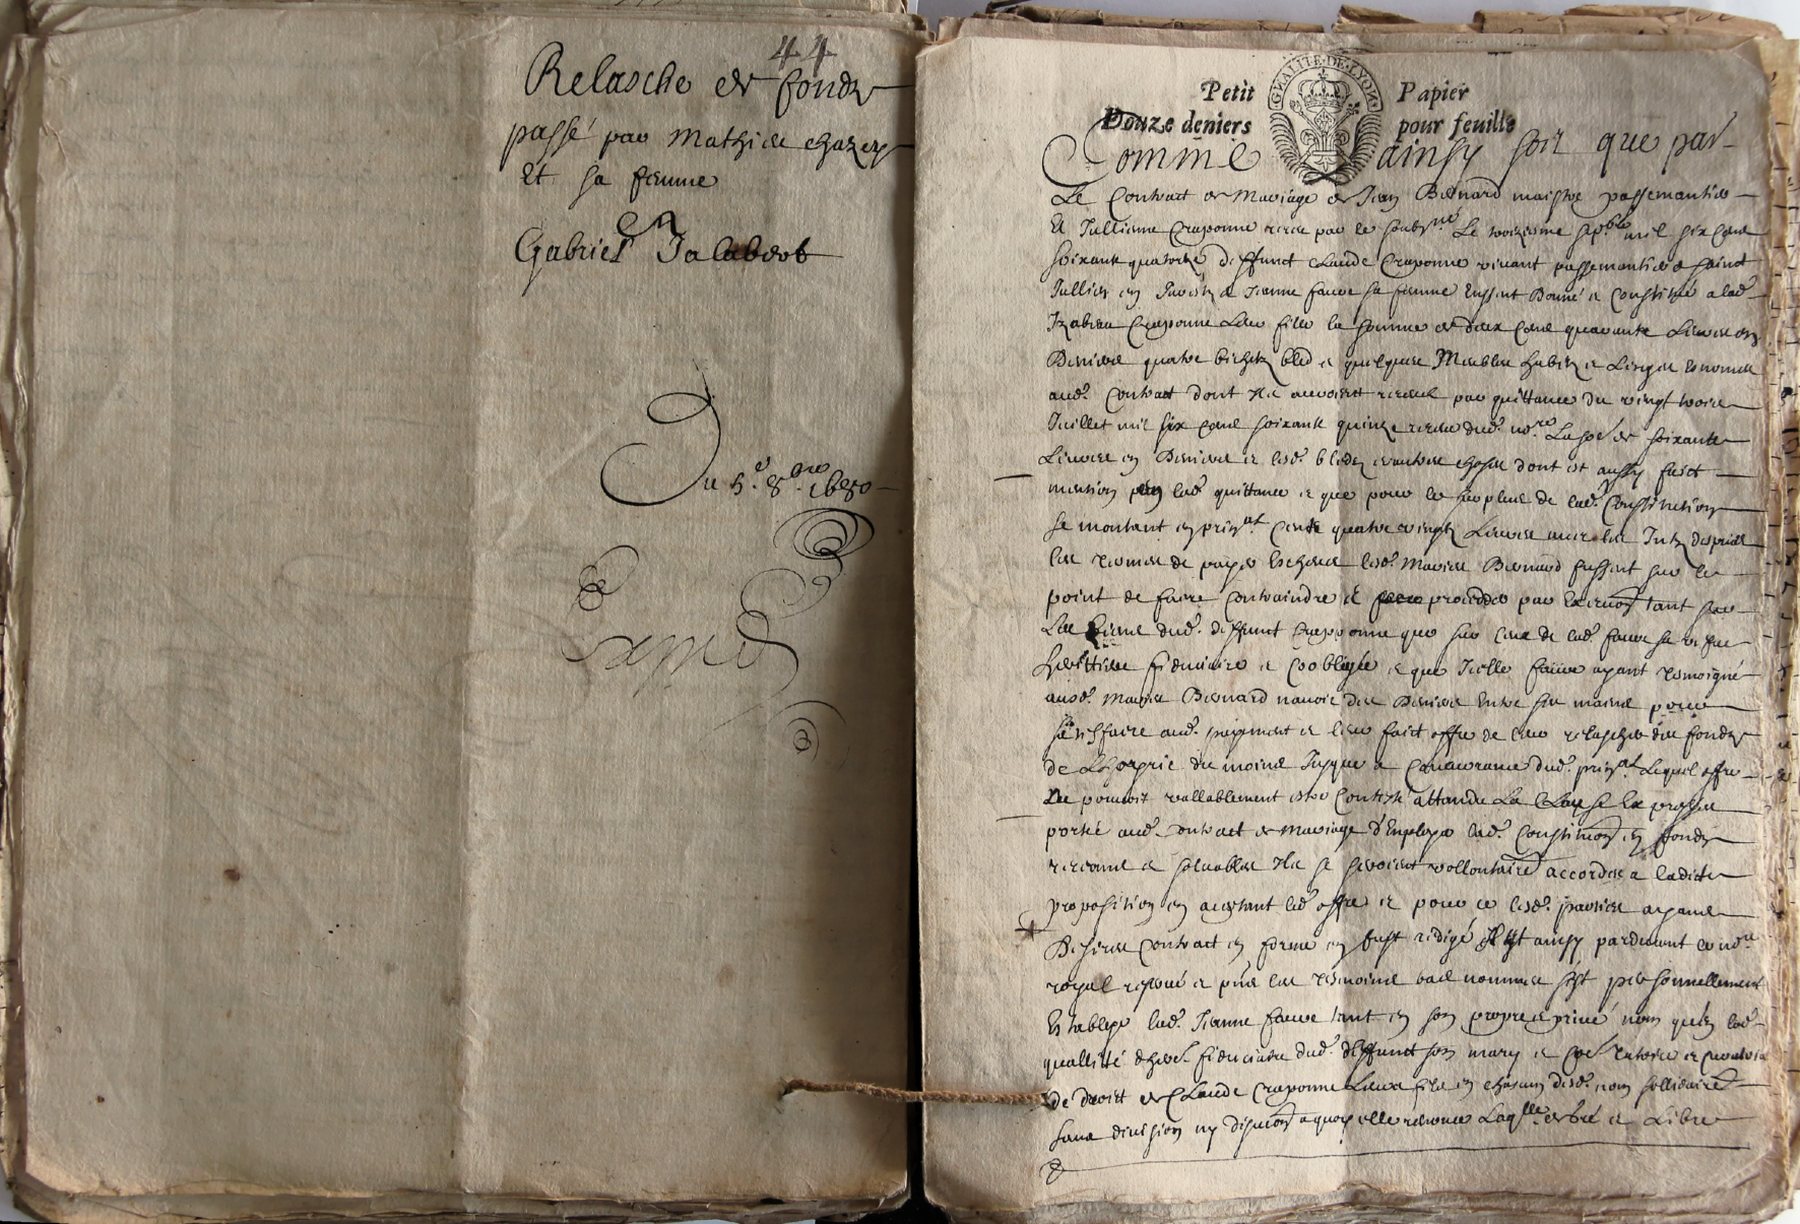 44
Relasche de fondz
passé par Mathieu Chazey
Et sa femme
En
Gabriel Jalabert
Du 5.e 8.bre 1680
Exped
GNALITE DE LYON
Petit Papier
Douze deniers pour feuille
Comme ainsy soit que par
Le Contract de Mariage de Jean Bernard maistre passemantier
Et Jullienne Craponne receu par le soubz.né Le troiziesme sep.bre mil six cent
soixante quatorze deffunct Claude Craponne vivant passemantier de sainct
Jullien en Jarestz et Jeanne faure sa femme Eussent Donné et Constitué a lad.
Izabeau Craponne Leur fille la somme de deux cent quarante Livres en
Deniers quatre bichetz bled et quelques Meubles habitz et Linges Enoncez
aud. Contract dont Ils auroient receu par quittance du vingt trois
Juillet mil six cent soixante quinze receue dud. no.re La so.e de soixante
Livres en Deniers et lesd. bledz et autres choses dont est aussy faict
mention en lad. quittance et que pour le surplus de lad. Constitution
se montant en prin.al Cent quatre vingtz Livres avec les
les termes de payer Escheus lesd. Mariez Bernard fussent sur le
point de faire Contraindre et proceder par tant sur
Les Biens dud. deffunct Crapponne que sur Ceux de lad. faure sa vefve
heritiere fiduciaire et Coobligée et que Icelle faure ayant tesmoigné
ausd. Mariez Bernard n'avoir des Deniers Entre ses mains pour
satisffaire aud. payement et leur faict offre de leur relascher des fondz
de L'hoyrie du moins Jusques a Concurrance dud. prin.al Lequel offre
Ne pouvoit vallablement estre Contesté attandu La Clause Expresse
porté aud. Contract de Mariage d'Employer lad. Constitution en fondz
et solvables Ils se seroient vollontaire.t accordez a ladicte
proposition en acceptant led. offre et pour ce lesd. parties ayant
Desirez Contract en forme en fust redigé Il est ainsy pardevant le no.re
royal reservé et pnt les tesmoins bas nommez s'est personnellement
Establye lad. Jeanne faure tant en son propre et privé nom qu'en lad.
quallité d'her.e fiduciaire dud. deffunct son mary et tutrice et Curatrice
de droict de Claude Craponne Leur filz en chascun desd. nom sollidaire.t
sans division ny discution a quoy elle renonce Laq.lle de gré et Libre